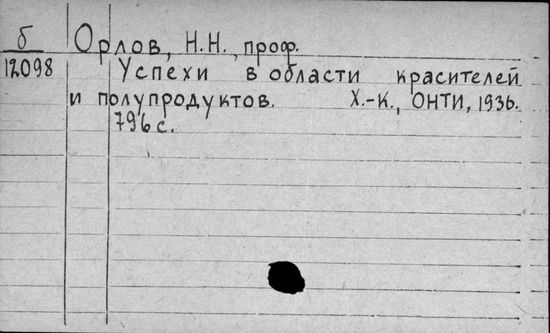 б Орлов, Н.Н., проф.
12098 Успехи в области красителей
и полупродуктов. Х.-К., ОНТИ, 1936.
796 с.